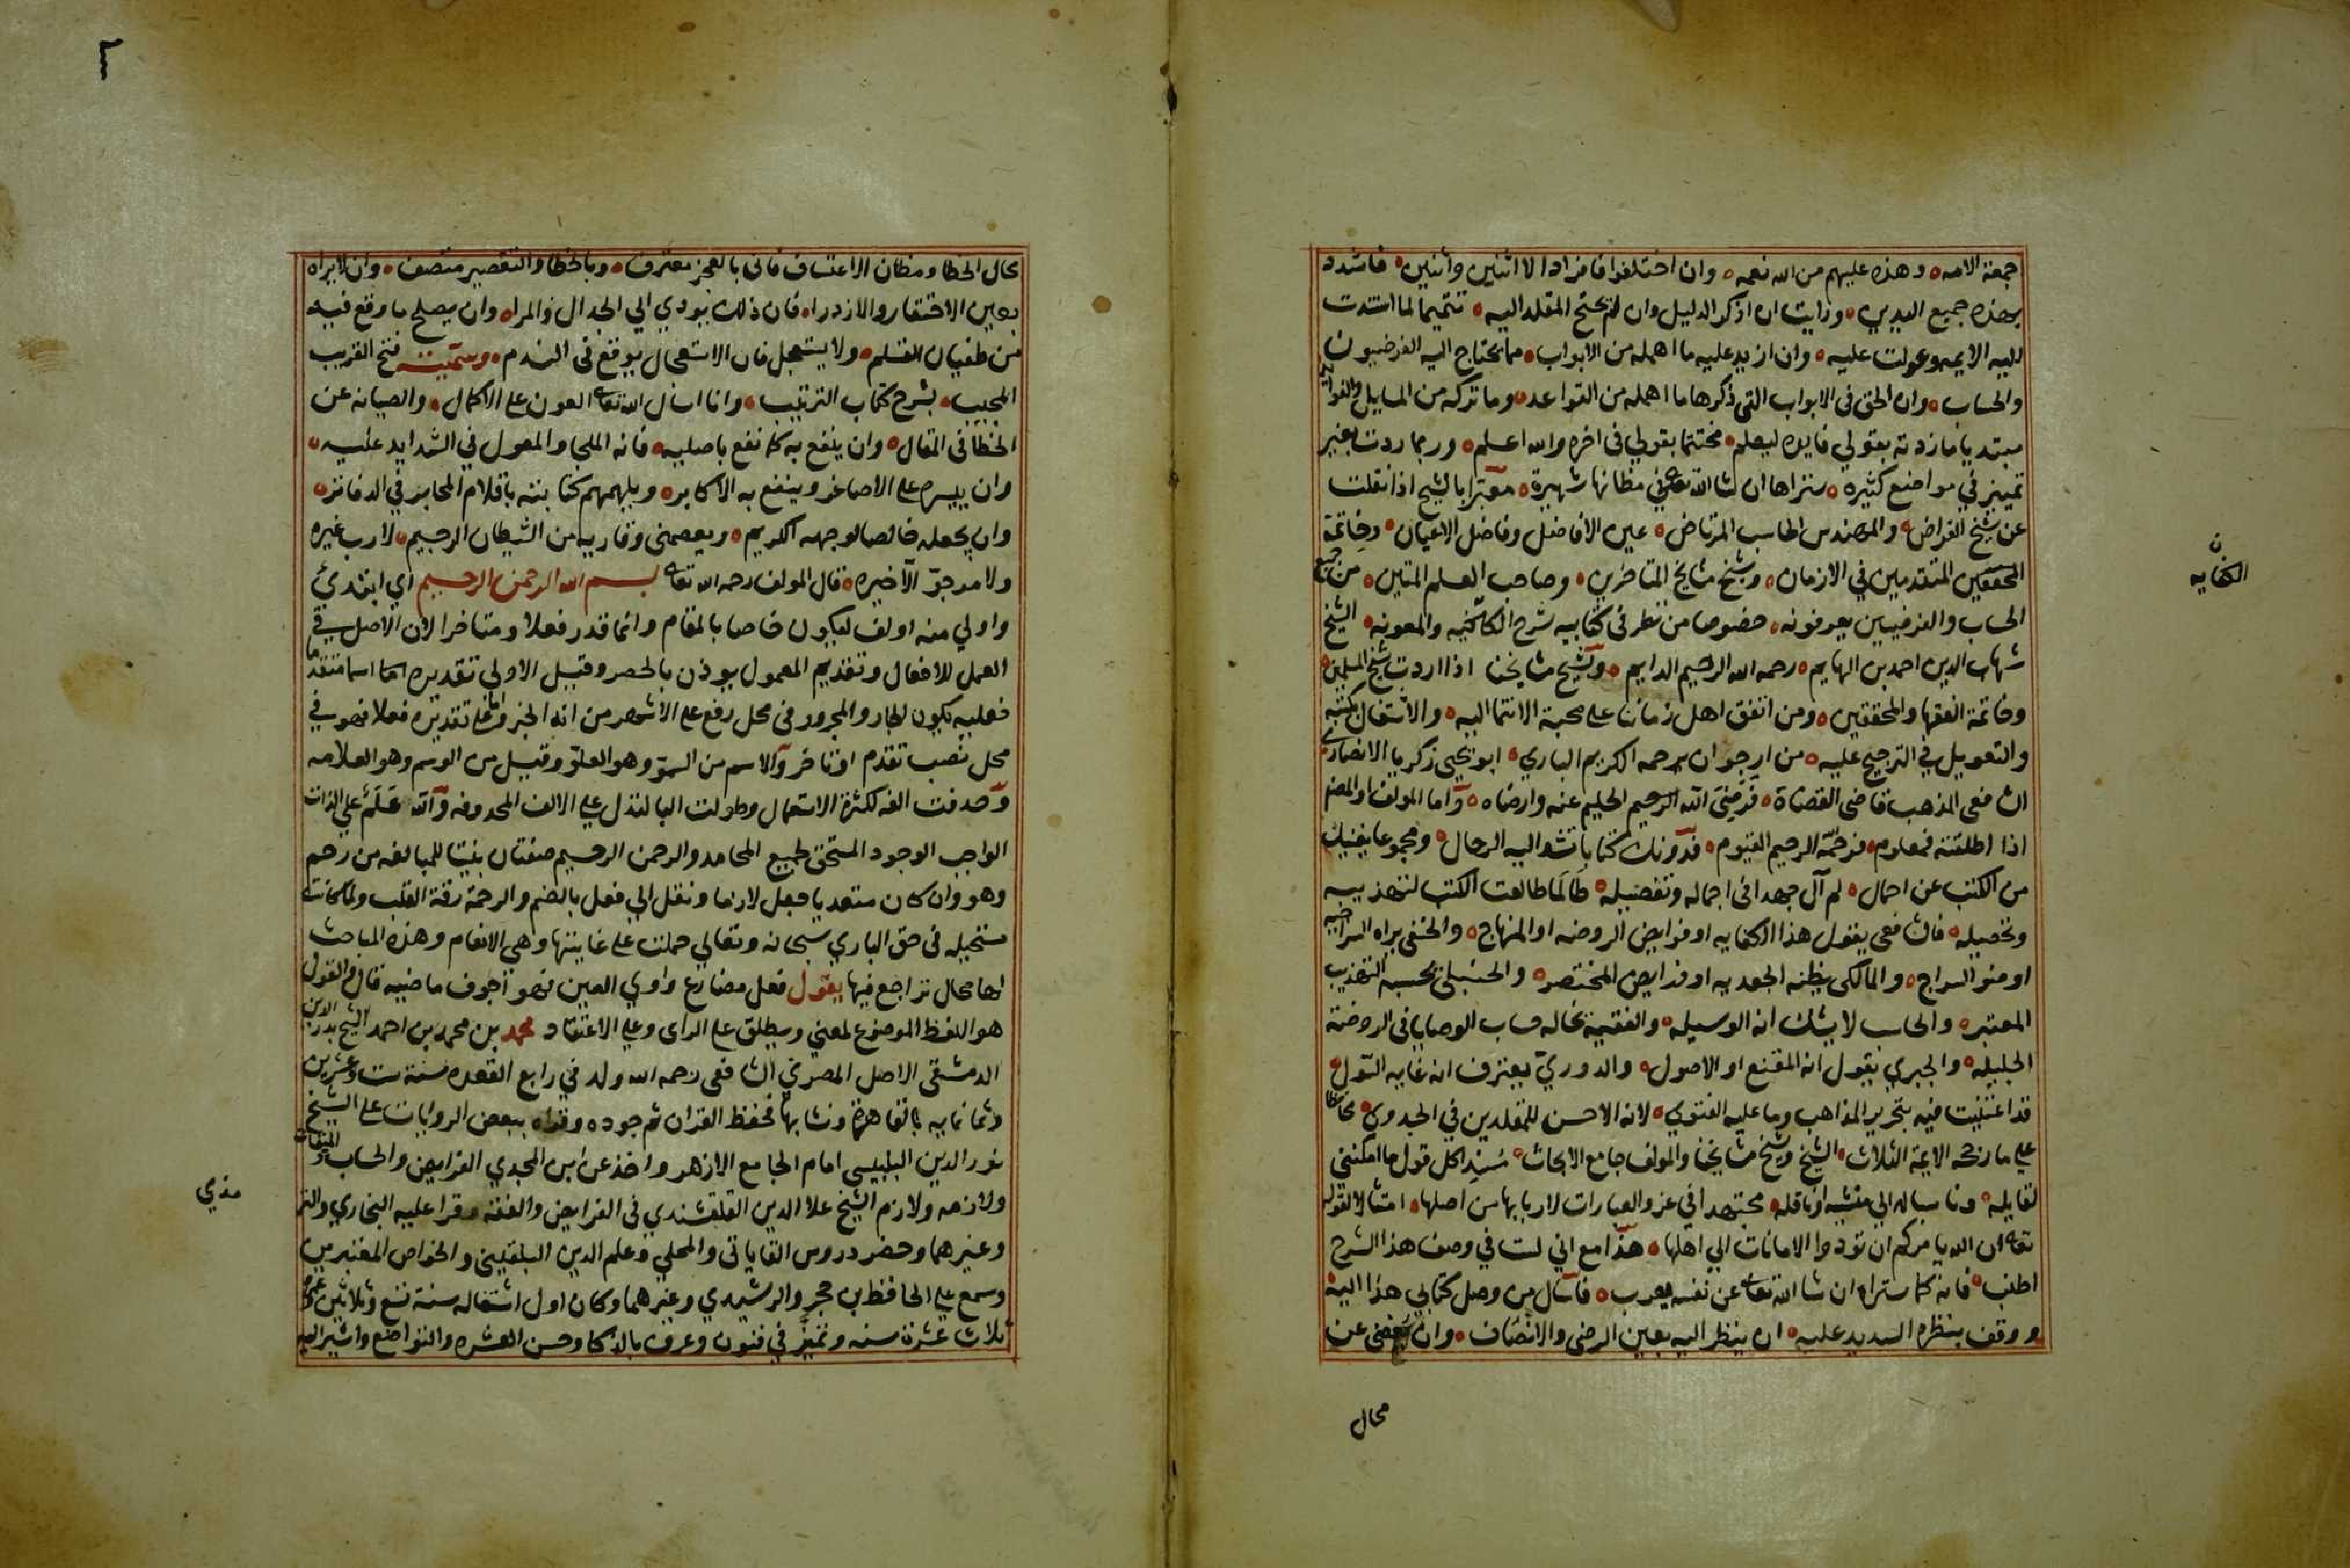 جمعة الامه وهذه عليهم من الله نعمه وان اختلفوا فافرادا لا اثنين واثنين فاشدد
بهذه جميع اليدين ورايت ان اذكر الدليل وان لم يحتج المقلد اليه تتميما لما استندت
اليه الايمه وعولت عليه وان ازيد عليه ما اهمله من الابواب مما يحتاج اليه الفرضيون
والحساب وان الحق في الابواب التي ذكرها ما اهمله من القواعد وما تركه من المسايل والفوايد
مبتديا ما زدته بقولي فايده ليعلم مختتما بقولي في اخره والله اعلم وربما زدت بغير
تمييز في مواضع كثيره ستراها ان شا الله تعالى في مظانها شهيرة معبرا بالشيخ اذا نقلت
عن شيخ الفراض والمهندس الحاسب المرتاض عين الافاضل وفاضل الاعيان وخاتمة
المحققين المتقدمين في الازمان وشيخ مشايخ المتاخرين وصاحب العلم المتين من جميع
الحساب والفرضيين يعرفونه خصوصا من نظر في كتابيه شرح الكفايه والمعونه الشيخ
شهاب الدين احمد بن الهايم رحمه الله الرحيم الدايم وبشيخ مشايخنا اذا اردت شيخ المسلمين
وخاتمة الفقها والمحققين ومن اتفق اهل زماننا على محبة الانتما اليه والاشتغال بكتبه
والتعويل في الترجيح عليه من ارجو ان يرحمه الكريم الباري ابو يحيى زكريا الانصاري
الشافعي المذهب قاضي القضاة فرضي الله الرحيم الحليم عنه وارضاه واما المولف او المصنف
اذا اطلقته فمعلوم فرحمه الرحيم القيوم فدونك كتابا تشد اليه الرحال ومجموعا يغنيك
من الكتب عن احمال لم آل جهدا في اجماله وتفصيله طالما طالعت الكتب لتهذيبه
وتحصيله فالشافعي يقول هذا الكفايه او فرايض الروضه او المنهاج والحنفي يراه السراجيه
او ضو السراج والمالكي يظنه الجعديه او فرايض المختصر والحنبلي يحسبه التهذيب
المعتبر والحاسب لا يشك انه الوسيله والفقيه يخاله حساب الوصايا في الروضة
الجليله والجبري يقول انه المقنع او الاصول والدوري يعترف انه غايه السول
قد اعتنيت فيه بتحرير المذاهب وما عليه الفتوي لانه الاحسن للمقلدين في الجدوي محافظا
على ما رجحه الايمة الثلاث الشيخ وشيخ مشايخنا والمولف جامع الابحاث مسندا كل قول ما امكنني
لقايله وناسباله الي منشيه او ناقله مجتهدا في عزو العبارات لاربابها من اصلها امتثالا لقوله
تعالى ان الله يامركم ان تودوا الامانات الي اهلها هذا مع اني لست في وصف هذا الشرح
اطنب فانه كما ستراه ان شا الله تعالى عن نفسه يعرب فاسال من وصل كتابي هذا اليه
ووقف بنظره السديد عليه ان ينظر اليه بعين الرضى والانصاف وان يغضي عن
محال
الكفايه
محال الخطا ومظان الاعتساف فاني بالعجز معترف وبالخطا والتقصير متصف وان لا يراه
بعين الاحتقار والازدرا فان ذلك يودي الي الجدال والمرا وان يصلح ما وقع فيه
من طغيان القلم ولا يستعجل فان الاستعجال يوقع في الندم وسميته فتح القريب
المجيب بشرح كتاب الترتيب وانا اسال الله تعالى العون على الاكمال والصيانه عن
الخطا في المقال وان ينفع به كما نفع باصليه فانه الملجا والمعول في الشدايد عليه
وان ييسره على الاصاغر وينفع به الاكابر ويلهمهم كتابته باقلام المحابر في الدفاتر
وان يجعله خالصا لوجهه الكريم ويعصمني وقاريه من الشيطان الرجيم لا رب غيره
ولا مرجو الا خيره قال المولف رحمه الله تعالى بسم الله الرحمن الرحيم اي ابتدئ
واولي منه اولف ليكون خاصا بالمقام وانما قدر فعلا ومتاخرا لان الاصل في
العمل للافعال وتقديم المعمول يوذن بالحصر وقيل الاولي تقديره اسما متقدما
فعليه يكون الجار والمجرور في محل رفع على الاشهر من انه الخبر واما على تقديره فعلا فهو في
محل نصب تقدم او تاخر والاسم من السمو وهو العلو وقيل من الوسم وهو العلامه
وحذفت الفه لكثرة الاستعمال وطولت البا لتدل على الالف المحذوفه والله علم على الذات
الواجب الوجود المستحق لجميع المحامد والرحمن الرحيم صفتان بنيتا للمبالغه من رحم
وهو وان كان متعديا جعل لازما ونقل الي فعل بالضم والرحمة رقة القلب ولما كانت
مستحيله في حق الباري سبحانه وتعالي حملت على غايتها وهي الانعام وهذه المباحث
لها محال تراجع فيها يقول فعل مضارع واوي العين فهو اجوف ماضيه قال والقول
هو اللفظ الموضوع لمعني ويطلق على الراى وعلى الاعتقاد محمد بن محمد بن احمد الشيخ بدر الدين
الدمشقي الاصل المصري الشافعي رحمه الله ولد في رابع القعده سنة ست وعشرين
وثمانمايه بالقاهرة ونشا بها فحفظ القران ثم جوده وقراه ببعض الروايات على الشيخ
نور الدين البلبيسي امام الجامع الازهر واخذ عن ابن المجدي الفرايض والحساب والميقات
ولازمه ولازم الشيخ علا الدين القلقشندي في الفرايض والفقه وقرا عليه البخاري والتر
مذي
وغيرهما وحضر دروس القاياتي والمحلي وعلم الدين البلقيني والخواص المعتبرين
وسمع على الحافظ بن حجر والرشيدي وغيرهما وكان اول اشتغاله سنة تسع وثلاثين
ثلاث عشرة سنه وتميز في فنون وعرف بالذكا وحسن العشره والتواضع واشير اليه